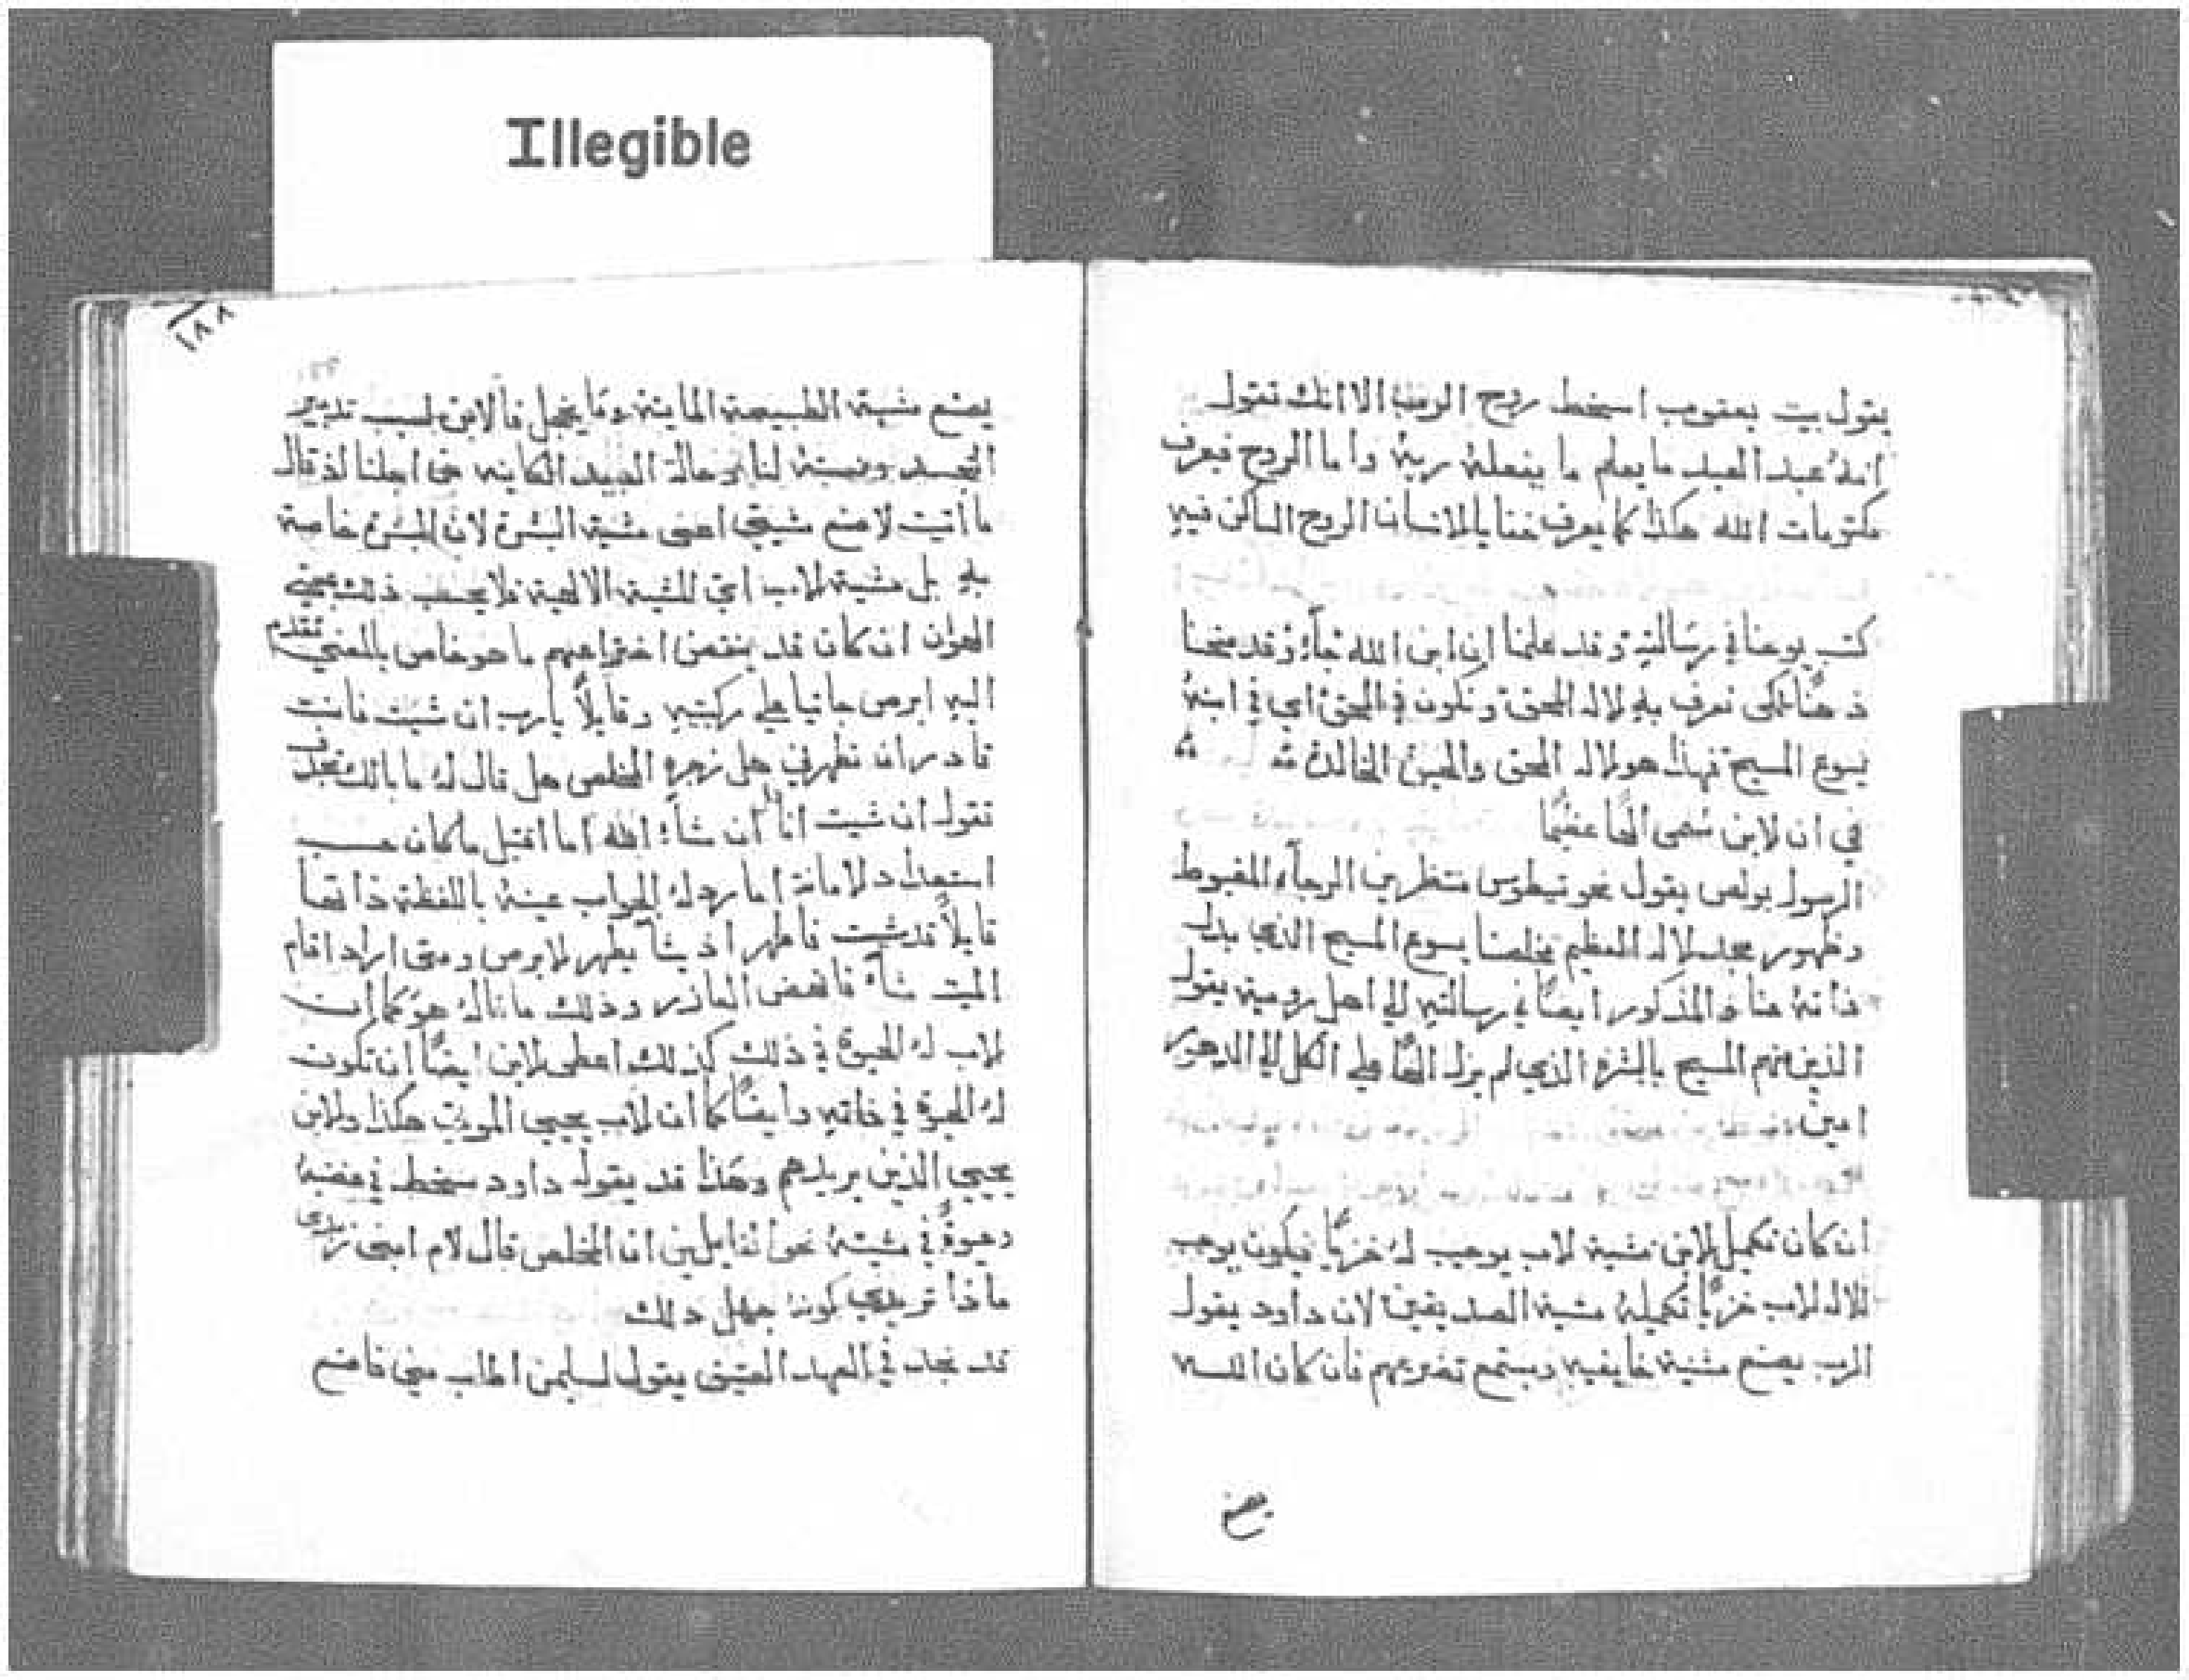 Illegible
يقول بيت يعقوب اسخط روح الرب الا انك تقول
انهُ عبد العبد ما يعلم ما يفعلهُ ربهُ واما الروح فيعرف
مكتومات الله هكذا كما يعرف خفايا الانسان الروح الساكن فيه
كتب يوحنا في رسالته وقد علمنا ان ابن الله جآء وقد منحنا
ذهنًا لكى نعرف به لاله الحق ونكون في الحق اي في ابنهُ
يسوع المسيح فهذا هو لاله الحق والحيوة الخالدة
في ان لابن سُمى الهًا عظيمًا
الرسول بولص يقول نحو تيطوس منتظرين الرجآء المغبوط
وظهور مجد لاله العظيم مخلصنا يسوع المسيح الذي بذل
ذاته عنا والمذكور ايضًا في رسالته الي اهل رومية يقول
الذين منهم المسيح بالبشرة الذي لم يزل الهًا علي الكل الي الدهور
امين
ان كان تكميل لابن مشية لاب يوجب لهُ خزيًا فيكون يوجب
للاله لاب خزيًا تكميلهُ مشية الصديقين لان داود يقول
الرب يصنع مشية خايفيه ويستمع تضرعهم فان كان الله
يصنع
١٨٨
يصنع مشية الطبيعة المايتة وما يخجل فالابن لسبب تدبير
التجسد ونسبتهُ لنا وحالة العبيد الكاينه من اجلنا اذ قال
ما أتيت لاصنع مشيتي اعنى مشية البشرة لان البشرة خاصة
به بل مشية لاب اي المشية الالهية فلا يحسب ذلك
الهوان ان كان قد ينقض اختراعهم ما هو خاص بالمعني تقدم
اليه ابرص جاثيا علي ركبتيه وقايلًا يارب ان شيت فانت
قادر ان تطهرني هل زجره المخلص هل قال له ما بالك تجدف
تقول ان شيت انا ان شآء الله اما اقبل ما كان حسب
استعداد لامانة اما رد لهُ الجواب عينهُ باللفظة ذاتها
قايلًا قد شيت فاطهر اذ يشآ يطهر لابرص ومتى اراد اقام
الميت شآء فانهض العاذر وذلك ما ناله هو كما ان
لاب لهُ الحيوة في ذلك كذلك اعطى لابن ايضًا ان تكون
لهُ الحيوة في ذاته وايضًا كما ان لاب يحيي الموتى هكذا ولابن
يحيي الذين يريدهم وهذا قد يقوله داود سخط في غضبهُ
وحيوة في مشيتهُ نحو القايلين ان المخلص قال لام ابنى زبدى
ماذا تريدي كونهُ جهل ذلك
قد نجد في العهد العتيق يقول لسليمن اطلب مني فاصنع